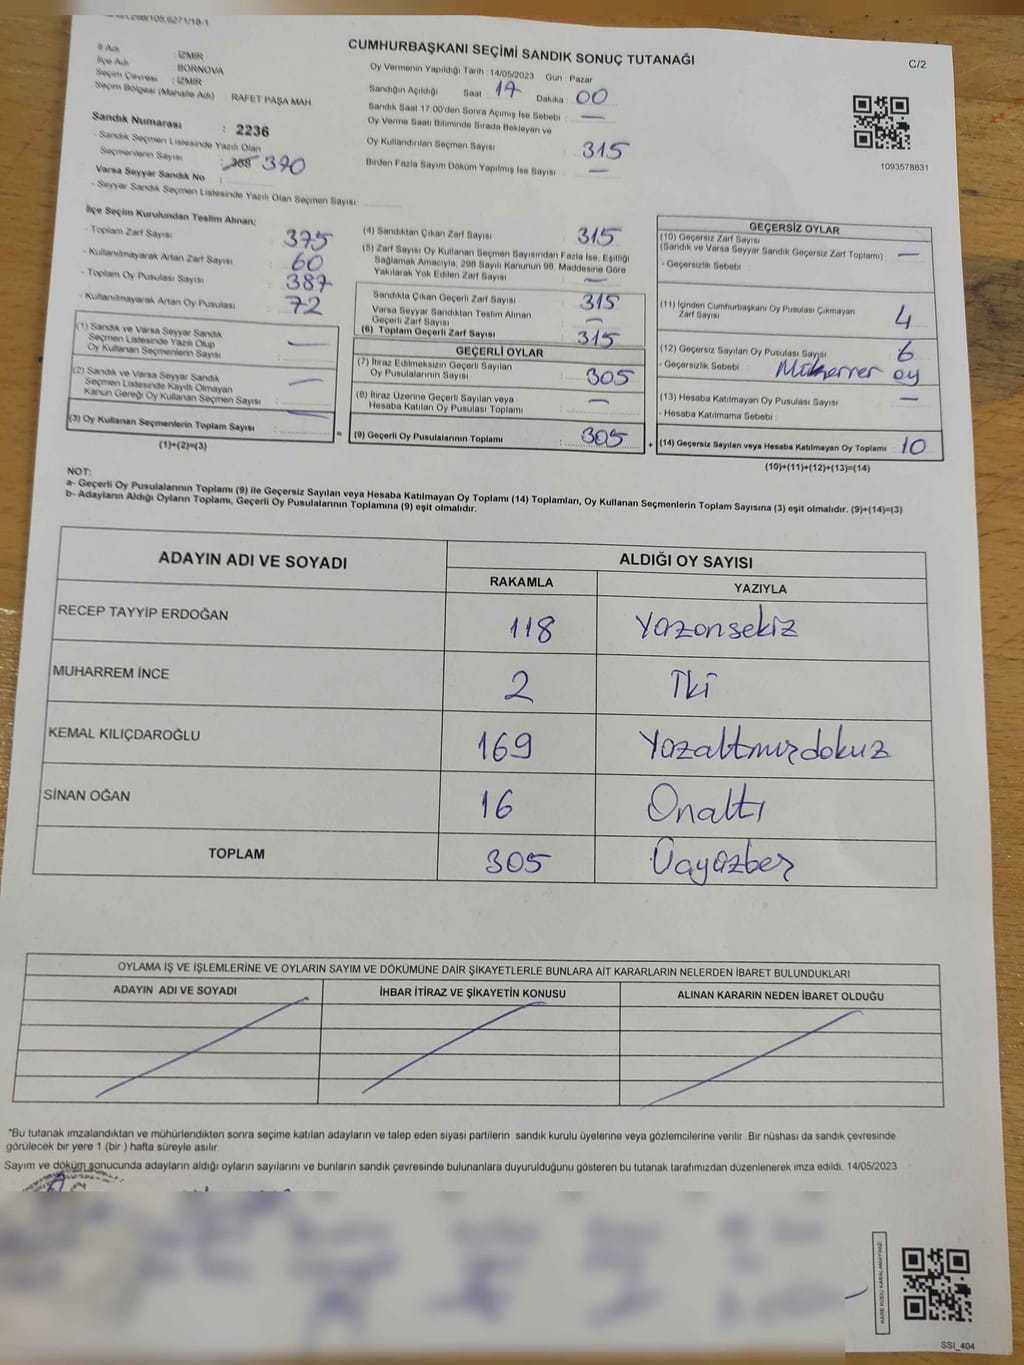 CUMHURBAŞKANI SEÇİMİ SANDIK SONUÇ TUTANAĞI
C/2
İl Adı : İZMİR
İlçe Adı : BORNOVA
Seçim Çevresi : İZMİR
Seçim Bölgesi (Mahalle Adı) : RAFET PAŞA MAH
Sandık Numarası : 2236
- Sandık Seçmen Listesinde Yazılı Olan
Seçmenlerin Sayısı : 368 370
Varsa Seyyar Sandık No :
- Seyyar Sandık Seçmen Listesinde Yazılı Olan Seçmen Sayısı
Oy Vermenin Yapıldığı Tarih : 14/05/2023 Gün : Pazar
Sandığın Açıldığı Saat : 17 Dakika : 00
Sandık Saat 17:00'den Sonra Açılmış İse Sebebi : —
Oy Verme Saati Bitiminde Sırada Bekleyen ve
Oy Kullandırılan Seçmen Sayısı : 315
Birden Fazla Sayım Döküm Yapılmış İse Sayısı : —
1093578831
İlçe Seçim Kurulundan Teslim Alınan;
- Toplam Zarf Sayısı : 375
- Kullanılmayarak Artan Zarf Sayısı : 60
- Toplam Oy Pusulası Sayısı : 387
- Kullanılmayarak Artan Oy Pusulası : 72
(1) Sandık ve Varsa Seyyar Sandık
Seçmen Listesinde Yazılı Olup
Oy Kullanan Seçmenlerin Sayısı : —
(2) Sandık ve Varsa Seyyar Sandık
Seçmen Listesinde Kayıtlı Olmayan
Kanun Gereği Oy Kullanan Seçmen Sayısı : —
(3) Oy Kullanan Seçmenlerin Toplam Sayısı : —
(1)+(2)=(3)
(4) Sandıktan Çıkan Zarf Sayısı : 315
(5) Zarf Sayısı Oy Kullanan Seçmen Sayısından Fazla İse, Eşitliği
Sağlamak Amacıyla; 298 Sayılı Kanunun 98. Maddesine Göre
Yakılarak Yok Edilen Zarf Sayısı : —
Sandıkta Çıkan Geçerli Zarf Sayısı : 315
Varsa Seyyar Sandıktan Teslim Alınan
Geçerli Zarf Sayısı : —
(6) Toplam Geçerli Zarf Sayısı : 315
GEÇERLİ OYLAR
(7) İtiraz Edilmeksizin Geçerli Sayılan
Oy Pusulalarının Sayısı : 305
(8) İtiraz Üzerine Geçerli Sayılan veya
Hesaba Katılan Oy Pusulası Toplamı : —
= (9) Geçerli Oy Pusulalarının Toplamı : 305
GEÇERSİZ OYLAR
(10) Geçersiz Zarf Sayısı
(Sandık ve Varsa Seyyar Sandık Geçersiz Zarf Toplamı) : —
- Geçersizlik Sebebi :
(11) İçinden Cumhurbaşkanı Oy Pusulası Çıkmayan
Zarf Sayısı : 4
(12) Geçersiz Sayılan Oy Pusulası Sayısı : 6
- Geçersizlik Sebebi : Mükerrer oy
(13) Hesaba Katılmayan Oy Pusulası Sayısı : —
- Hesaba Katılmama Sebebi :
+ (14) Geçersiz Sayılan veya Hesaba Katılmayan Oy Toplamı : 10
(10)+(11)+(12)+(13)=(14)
NOT:
a- Geçerli Oy Pusulalarının Toplamı (9) ile Geçersiz Sayılan veya Hesaba Katılmayan Oy Toplamı (14) Toplamları, Oy Kullanan Seçmenlerin Toplam Sayısına (3) eşit olmalıdır. (9)+(14)=(3)
b- Adayların Aldığı Oyların Toplamı, Geçerli Oy Pusulalarının Toplamına (9) eşit olmalıdır.
ADAYIN ADI VE SOYADI
ALDIĞI OY SAYISI
RAKAMLA YAZIYLA
RECEP TAYYİP ERDOĞAN 118 Yüzonsekiz
MUHARREM İNCE 2 İki
KEMAL KILIÇDAROĞLU 169 Yüzaltmışdokuz
SİNAN OĞAN 16 Onaltı
TOPLAM 305 Üçyüzbeş
OYLAMA İŞ VE İŞLEMLERİNE VE OYLARIN SAYIM VE DÖKÜMÜNE DAİR ŞİKAYETLERLE BUNLARA AİT KARARLARIN NELERDEN İBARET BULUNDUKLARI
ADAYIN ADI VE SOYADI İHBAR İTİRAZ VE ŞİKAYETİN KONUSU ALINAN KARARIN NEDEN İBARET OLDUĞU
*Bu tutanak imzalandıktan ve mühürlendikten sonra seçime katılan adayların ve talep eden siyasi partilerin sandık kurulu üyelerine veya gözlemcilerine verilir. Bir nüshası da sandık çevresinde
görülecek bir yere 1 (bir) hafta süreyle asılır.
Sayım ve döküm sonucunda adayların aldığı oyların sayılarını ve bunların sandık çevresinde bulunanlara duyurulduğunu gösteren bu tutanak tarafımızdan düzenlenerek imza edildi. 14/05/2023
KARE KODU KARALAMAYINIZ!
SSİ_404